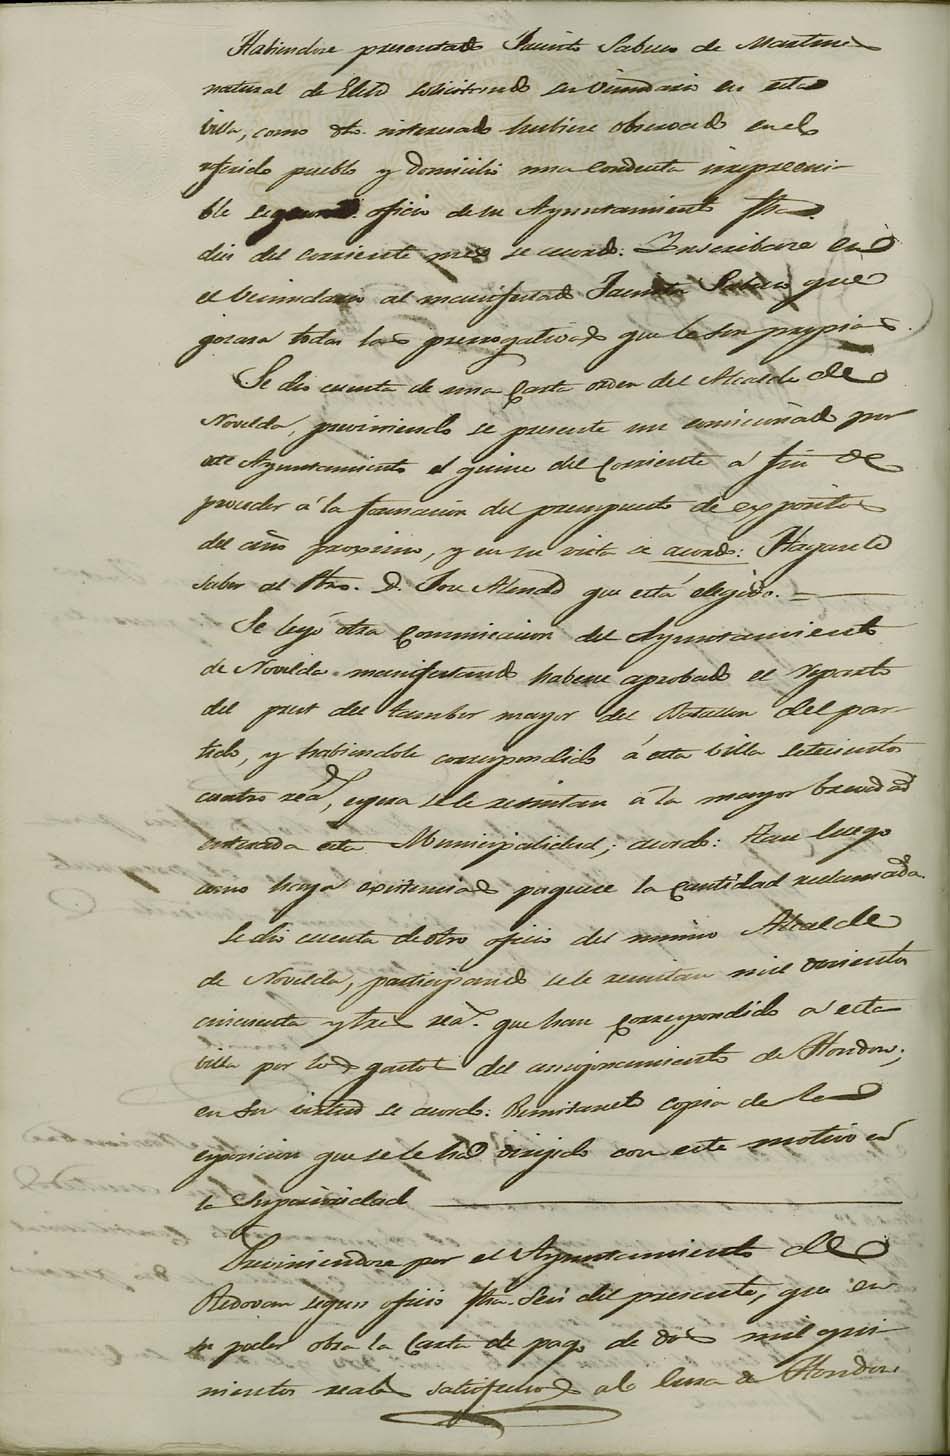 Habiendose presentado Jacinto Sabuco de Martinez
natural de Elda solicitando su vecindario en esta
villa, como dho. interesado hubiese observado en el
referido pueblo y domicilio una conducta irreprensi-
ble segun oficio de su Ayuntamiento fha.
dies del corriente mes se acordó: Inscribase en
el vecindario al manifestado Jacinto Sabuco que
gozara todas las prerrogativas que le son propias
Se dio cuenta de una Carta orden del Alcalde de
Novelda, previniendo se presente un comicionado por
este Ayuntamiento el quince del corriente á fin de
proceder á la formacion del presupuesto de expositos
del año proximo, y en su vista se acordó: Hagasele
saber al Ptro. D. José Alenda que está elegido.
Se leyó otra comunicacion del Ayuntamiento
de Novelda manifestando haberse aprobado el reparto
del prest del tambor mayor del Batallon del par-
tido, y habiendole correspondido á esta villa setecientos
cuatro rea.s, cuya se le remitan á la mayor brevedad
enterada esta Municipalidad; acordó: Tan luego
como haya existencias paguese la cantidad reclamada.
Se dio cuenta de otro oficio del mismo Alcalde
de Novelda, participando se le remitan mil docientos
cincuenta y tres rea.s que han correspondido á esta
villa por los gastos del amojonamiento de Hondon;
en su virtud se acordó: Remitasele copia de la
exposicion que se le ha dirijido con este motivo á
la Superioridad
Previniendose por el Ayuntamiento de
Redovan segun oficio fha. Seis del presente, que en
su poder obra la Carta de pago de dos mil quin-
nientos reales satisfechos al Cura de Hondon,